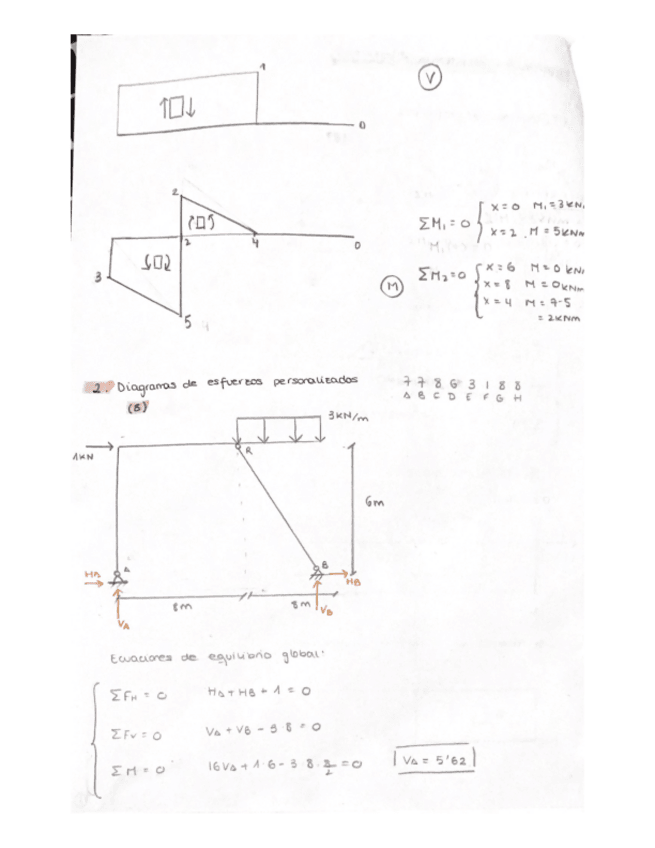 1
V
0
2
ΣM₁ = 0 { x=0 M₁ = 3 KN
x=2 . M = 5 KNm
2 4 0
3
M
ΣM₂ = 0 { x = 6 M = 0 KN
x = 8 M = 0 KNm
x = 4 M = 7-5
= 2KNm
5
2. Diagramas de esfuerzos personalizados
(B)
7 7 8 6 3 1 8 8
A B C D E F G H
3KN/m
1KN
R
6m
A
B
HA
HB
8m
8m
VA
VB
Ecuaciones de equilibrio global:
ΣFH = 0 HA + HB + 1 = 0
ΣFV = 0 VA + VB - 3·8 = 0
ΣM = 0 16VA + 1·6 - 3·8·8/2 = 0 VA = 5'62